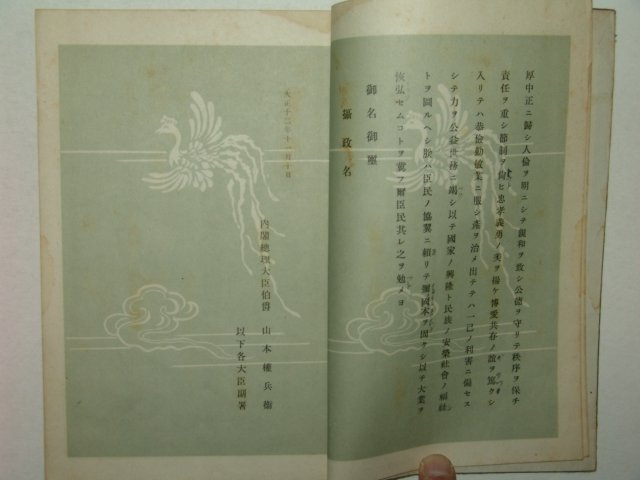 厚中正ニ歸シ人倫ヲ明ニシテ親和ヲ致シ公德ヲ守リテ秩序ヲ保チ
責任ヲ重シ節制ヲ尙ヒ忠孝義勇ノ美ヲ揚ケ博愛共存ノ誼ヲ篤クシ
入リテハ恭儉勤敏業ニ服シ產ヲ治メ出テテハ一己ノ利害ニ偏セス
シテ力ヲ公益世務ニ竭シ以テ國家ノ興隆ト民族ノ安榮社會ノ福祉
トヲ圖ルヘシ朕ハ臣民ノ協翼ニ賴リテ彌國本ヲ固クシ以テ大業ヲ
恢弘セムコトヲ冀フ爾臣民其レ之ヲ勉メヨ
御名御璽
攝政名
大正十二年十一月十日
內閣總理大臣伯爵 山本權兵衞
以下各大臣副署